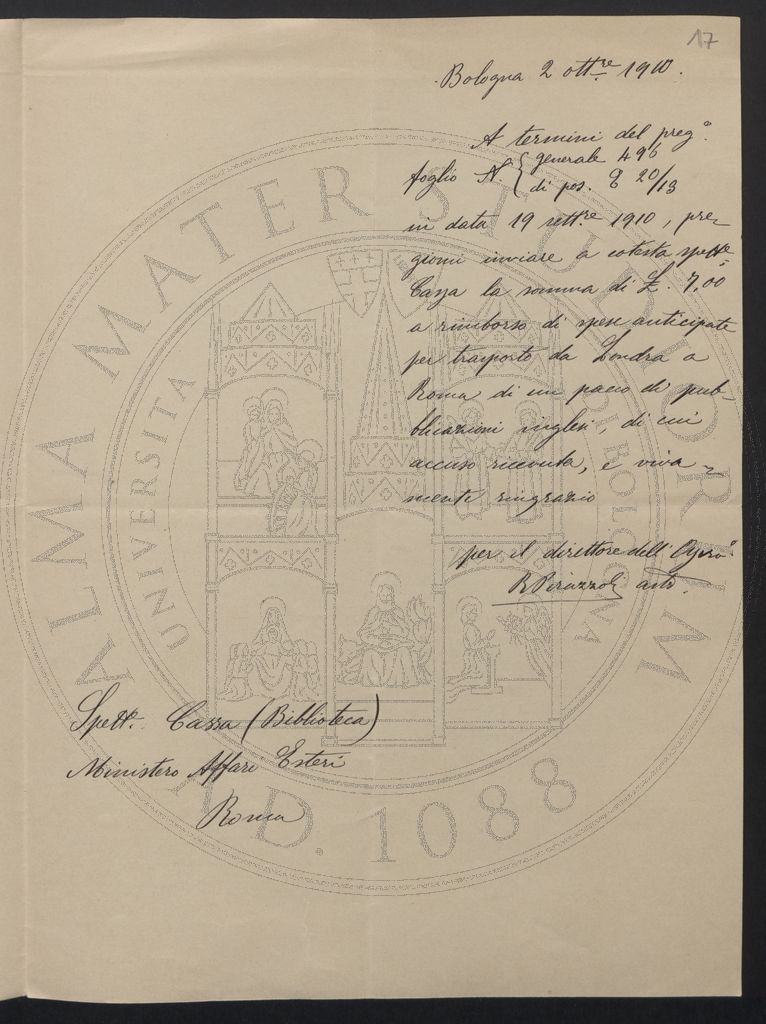 17
Bologna 2 ott.re 1910.
A termini del preg.o
foglio N. { generale 496
di pos. E 20/13
in data 19 sett.re 1910, pre-
giomi inviare a cotesta spett.e
Cassa la somma di £. 7,00
a rimborso di spese anticipate
per trasporto da Londra a
Roma di un pacco di pub-
blicazioni inglesi, di cui
accuso ricevuta, e viva-
mente ringrazio
per il direttore dell'
R Pirazzoli
Spett. Cassa (Biblioteca)
Ministero Affari Esteri
Roma
ALMA MATER STUDIORUM
UNIVERSITA DI BOLOGNA
A.D. 1088